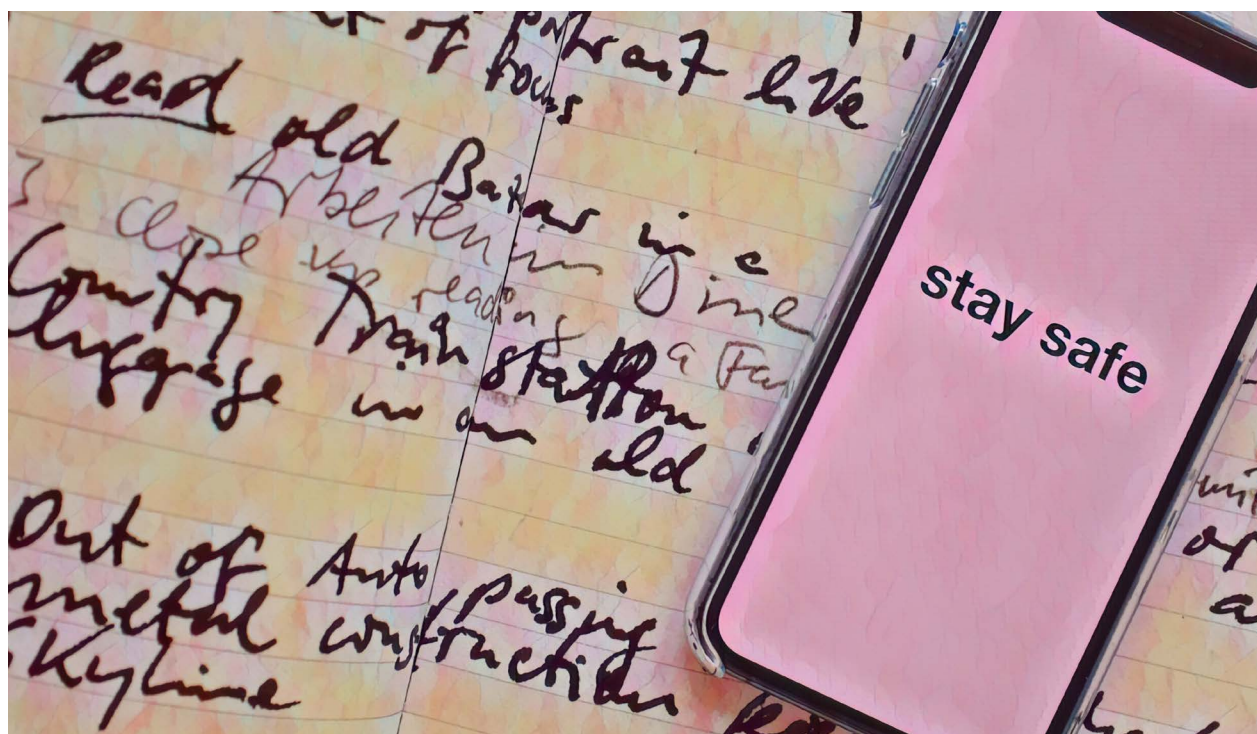 of portrait live
focus
Read old Bakar in a
Arbeiten in
Close up reading a
Country Train station
luggage in an old
Out of Auto, passing
metal construction
Skyline
stay safe